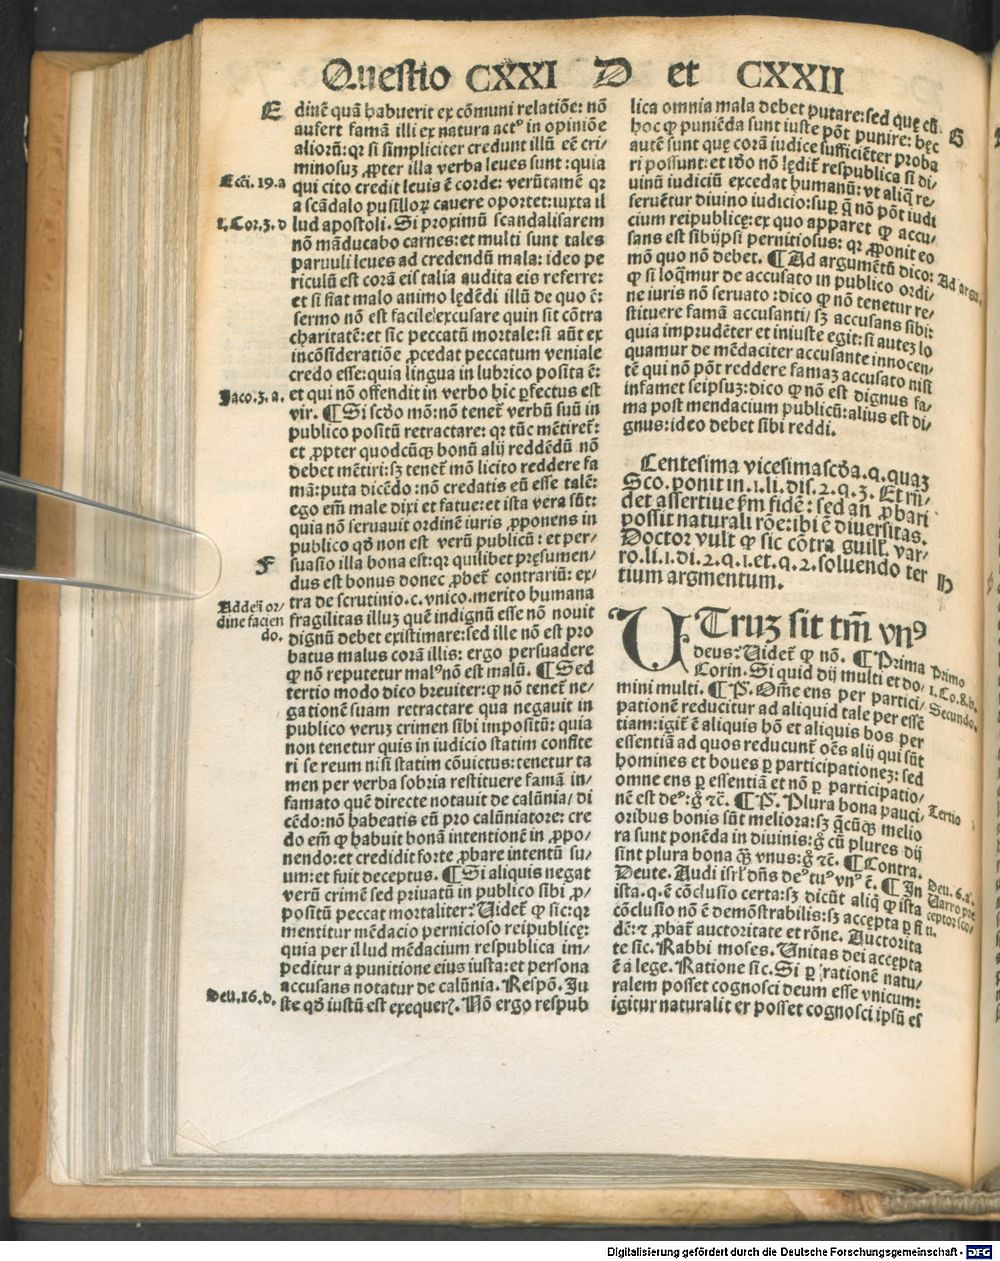 Questio CXXI D et CXXII
E
dinē quā habuerit ex cōmuni relatiōe: nō
aufert famā illi ex natura actꝰ in opiniōe
alioꝝ: qꝛ si simpliciter credunt illū eē cri/
minosuꝫ ꝓpter illa verba leues sunt: quia
Ecci. 19. a
qui cito credit leuis ē corde: verūtamē qꝛ
a scādalo pusilloꝝ cauere oportet: iuxta il
1. Cor. 3. d
lud apostoli. Si proximū scandalisarem
nō māducabo carnes: et multi sunt tales
paruuli leues ad credendū mala: ideo pe
riculū est corā eis talia audita eis referre:
et si fiat malo animo lędēdi illū de quo ē:
sermo nō est facile excusare quin sit cōtra
charitatē: et sic peccatū mortale: si aūt ex
incōsideratiōe ꝓcedat peccatum veniale
credo esse: quia lingua in lubrico posita ē:
Jaco. 3. a.
et qui nō offendit in verbo hic ꝑfectus est
vir. ¶ Si scđo mō: nō tenet̄ verbū suū in
publico positū retractare: qꝛ tūc mētiret̄:
et ꝓpter quodcūqꝫ bonū alij reddēdū nō
debet mētiri: sꝫ tenet̄ mō licito reddere fa
mā: puta dicēdo: nō credatis eū esse talē:
ego em̄ male dixi et fatue: et ista vera sūt:
quia nō seruauit ordinē iuris ꝓponens in
publico qđ non est verū publicū: et per/
F
suasio illa bona est: qꝛ quilibet pręsumen/
dus est bonus donec ꝓbet̄ contrariū: ex/
Addeī or/
dine facien
do.
tra de scrutinio. c. vnico. merito humana
fragilitas illuꝫ quē indignū esse nō nouit
dignū debet existimare: sed ille nō est pro
batus malus corā illis: ergo persuadere
ꝙ nō reputetur malꝰ nō est malū. ¶ Sed
tertio modo dico breuiter: ꝙ nō tenet̄ ne/
gationē suam retractare qua negauit in
publico veruꝫ crimen sibi impositū: quia
non tenetur quis in iudicio statim confite
ri se reum nisi statim cōuictus: tenetur ta
men per verba sobria restituere famā in/
famato quē directe notauit de calūnia/ di
cēdo: nō habeatis eū pro calūniatore: cre
do em̄ ꝙ habuit bonā intentionē in ꝓpo/
nendo: et credidit forte ꝓbare intentū su/
um: et fuit deceptus. ¶ Si aliquis negat
verū crimē sed priuatū in publico sibi ꝓ/
positū peccat mortaliter? Uidet̄ ꝙ sic: qꝛ
mentitur mēdacio pernicioso reipublicę:
quia per illud mēdacium respublica im/
peditur a punitione eius iusta: et persona
accusans notatur de calūnia. Respō. Ju
Deu. 16. d.
ste qđ iustū est exequer?. Nō ergo respub
lica omnia mala debet putare: sed quę cū
G
hoc ꝙ puniēda sunt iuste pōt punire: hęc
autē sunt quę corā iudice sufficiēter proba
ri possunt: et iđo nō lędit̄ respublica si di/
uinū iudiciū excedat humanū: vt aliq̄ re/
seruētur diuino iudicio: suꝑ q̄ nō pōt iudi
cium reipublicę: ex quo apparet ꝙ accu/
sans est sibijpsi pernitiosus: qꝛ ꝓponit eo
mō quo nō debet. ¶ Ad argumētū dico:
Ad argu.
ꝙ si loq̄mur de accusato in publico ordi/
ne iuris nō seruato: dico ꝙ nō tenetur re/
stituere famā accusanti/ sꝫ accusans sibi:
quia imprudēter et iniuste egit: si auteꝫ lo
quamur de mēdaciter accusante innocen/
tē qui nō pōt reddere famaꝫ accusato nisi
infamet seipsuꝫ: dico ꝙ nō est dignus fa/
ma post mendacium publicū: alius est di/
gnus: ideo debet sibi reddi.
Centesima vicesimascđa. q. quaꝫ
Sco. ponit in. 1. li. dis. 2. q. 3. Et rn̄/
det assertiue ẜm fidē: sed an ꝓbari
possit naturali rōe: ibi ē diuersitas.
Doctor vult ꝙ sic cōtra guilł. var/
ro. li. 1. di. 2. q. 1. et. q. 2. soluendo ter
tium argmentum.
H
UTruꝫ sit tm̄ vnꝰ
deus? Uidet̄ ꝙ nō. ¶ Prima
Primo
Corin. Si quid dij multi et do/
1. Co. 8. b.
mini multi. ¶ P̄. Om̄e ens per partici/
Secundo.
pationē reducitur ad aliquid tale per essē
tiam: igit̄ ē aliquis hō et aliquis bos per
essentiā ad quos reducunt̄ oēs alij qui sūt
homines et boues ꝑ participationeꝫ: sed
omne ens ꝑ essentiā et nō ꝑ participatio/
nē est deꝰ: g̊ ⁊c̄. ¶ P̄. Plura bona pauci/
Tertio
oribus bonis sūt meliora: sꝫ q̄cūqꝫ melio
ra sunt ponēda in diuinis: g̊ cū plures dij
sint plura bona q̄ꝫ vnus: g̊ ⁊c̄. ¶ Contra.
Deute. Audi isrl̄ dn̄s deꝰ tuꝰ vnꝰ ē. ¶ In
Deu. 6. a.
ista. q. ē cōclusio certa: sꝫ dicūt aliq̄ ꝙ ista
Uarro pre
cōclusio nō ē demōstrabilis: sꝫ accepta ꝑ fi
ceptor sco/
ti.
dē: ⁊ ꝓbat̄ auctoritate et rōne. Auctorita
te sic. Rabbi moses. Unitas dei accepta
ē a lege. Ratione sic. Si ꝑ rationē natu/
ralem posset cognosci deum esse vnicum:
igitur naturaliter posset cognosci ipsū es
Digitalisierung gefördert durch die Deutsche Forschungsgemeinschaft - DFG